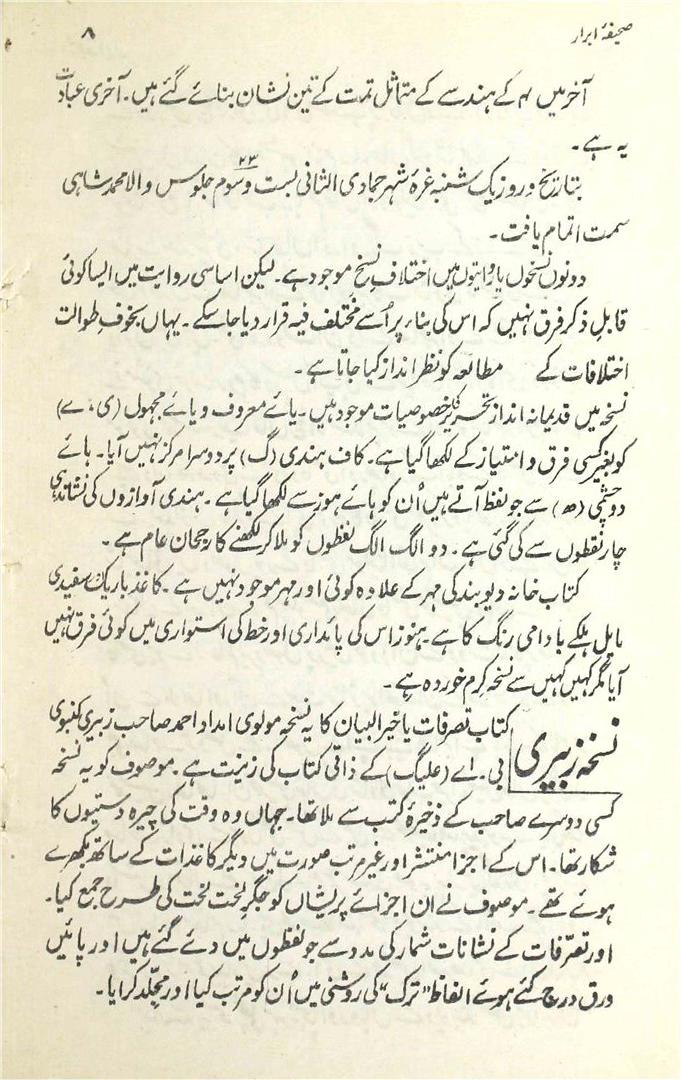 صحیفۂ ابرار
۸
آخر میں ۴ کے ہندسے کے متماثل تمت کے تین نشان بنائے گئے ہیں۔ آخری عبارت
یہ ہے۔
بتاریخ و روز یک شنبہ غرۂ شہر جمادی الثانی بست و سوم ۲۳ جلوس والا محمد شاہی
سمت اتمام یافت۔
دونوں نسخوں یا روایتوں میں اختلافِ نسخ موجود ہے۔ لیکن اساسی روایت میں ایسا کوئی
قابلِ ذکر فرق نہیں کہ اس کی بناء پر اُسے مختلف فیہ قرار دیا جا سکے۔ یہاں بخوفِ طوالت
اختلافات کے مطالعہ کو نظر انداز کیا جاتا ہے۔
نسخہ میں قدیمانہ اندازِ تحریر کی خصوصیات موجود ہیں۔ یائے معروف و یائے مجہول (ی، ے)
کو بغیر کسی فرق و امتیاز کے لکھا گیا ہے۔ کاف ہندی (گ) پر دوسرا مرکز نہیں آیا۔ ہائے
دو چشمی (ھ) سے جو لفظ آتے ہیں اُن کو ہائے ہوز سے لکھا گیا ہے۔ ہندی آوازوں کی نشاندہی
چار نقطوں سے کی گئی ہے۔ دو الگ الگ لفظوں کو ملا کر لکھنے کا رجحان عام ہے۔
کتاب خانہ دیوبند کی مہر کے علاوہ کوئی اور مہر موجود نہیں ہے۔ کاغذ باریک سفیدی
مایل ہلکے بادامی رنگ کا ہے۔ ہنوز اس کی پائداری اور خط کی استواری میں کوئی فرق نہیں
آیا مگر کہیں کہیں سے نسخہ کِرم خوردہ ہے۔
نسخہ زبیری
کتاب تصرفات یا خیر البیان کا یہ نسخہ مولوی امداد احمد صاحب زبیری کنبوی
بی۔ اے (علیگ) کے ذاتی کتاب کی زینت ہے۔ موصوف کو یہ نسخہ
کسی دوسرے صاحب کے ذخیرۂ کتب سے ملا تھا۔ جہاں وہ وقت کی چیرہ دستیوں کا
شکار تھا۔ اس کے اجزا منتشر اور غیر مرتب صورت میں دیگر کاغذات کے ساتھ بکھرے
ہوئے تھے۔ موصوف نے ان اجزائے پریشاں کو جگرِ لخت لخت کی طرح جمع کیا۔
اور تصرّفات کے نشانات شمار کی مدد سے جو لفظوں میں دئے گئے ہیں اور پائیں
ورق درج کئے ہوئے الفاظ ”ترک“ کی روشنی میں اُن کو مرتب کیا اور مجلّد کرایا۔